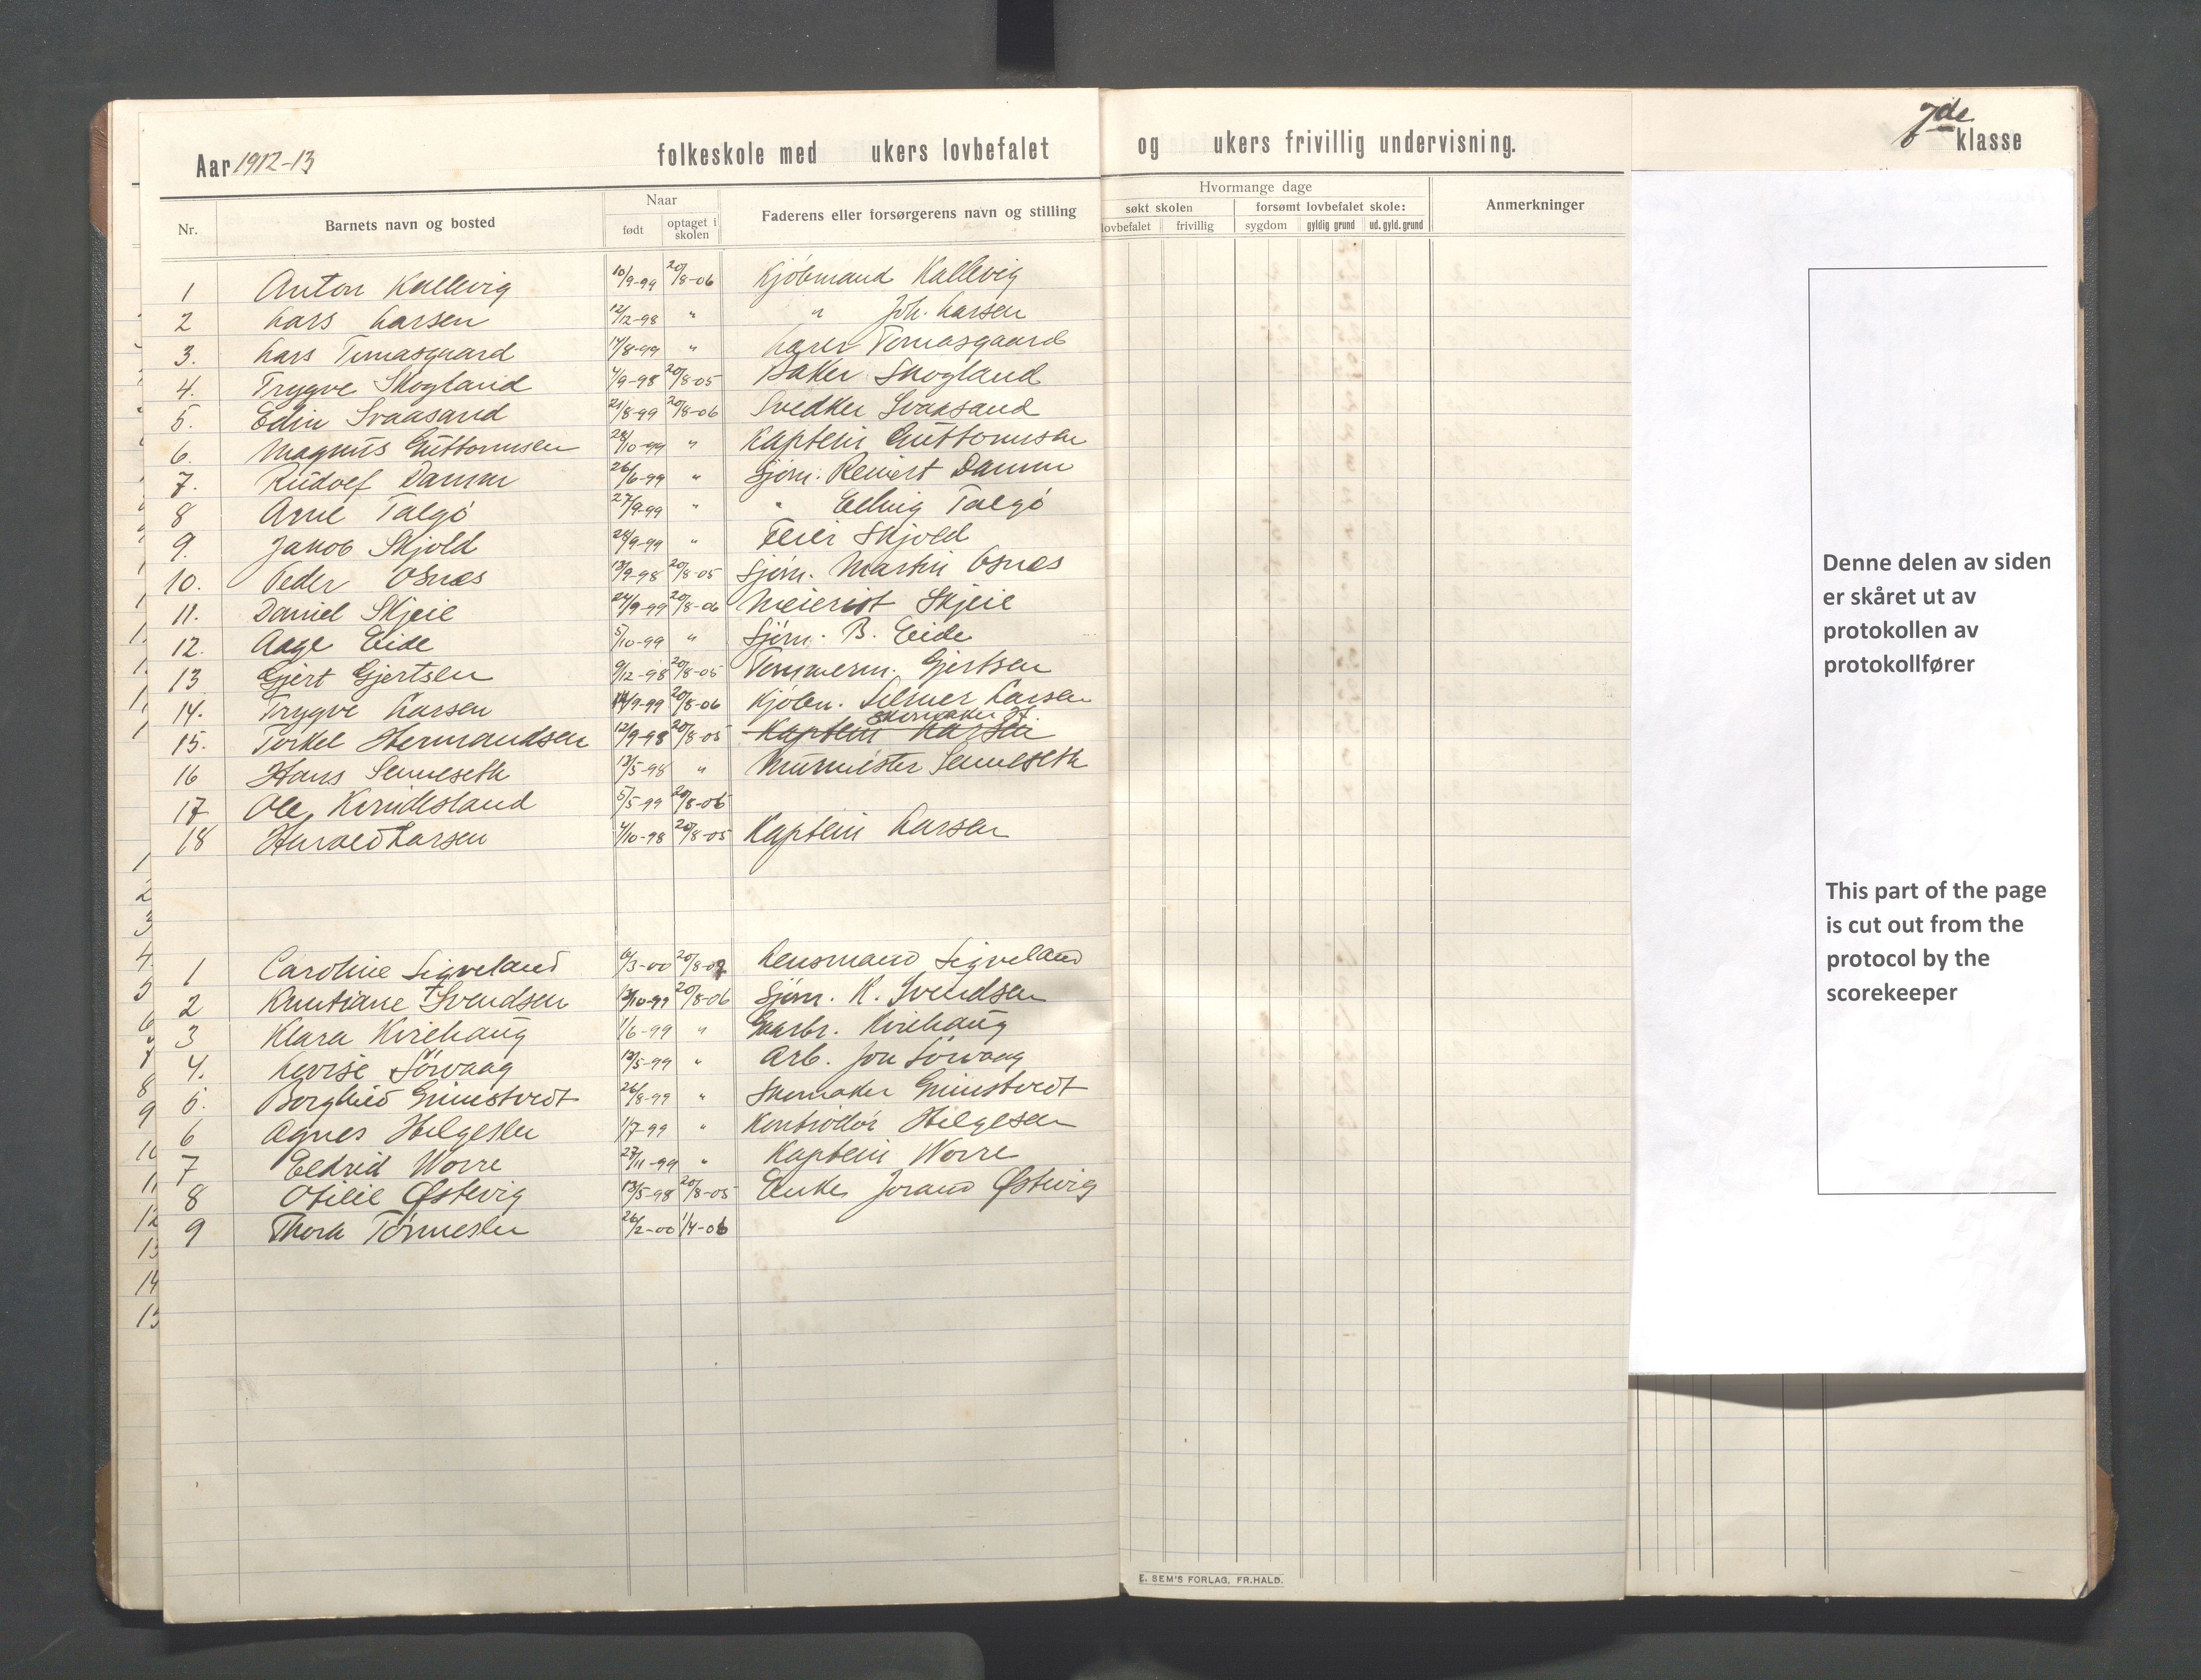 Aar 1912-13 folkeskole med ukers lovbefalet og ukers frivillig undervisning. 7de klasse
Nr. Barnets navn og bosted Naar Faderens eller forsørgerens navn og stilling Hvormange dage Anmerkninger
født optaget i skolen søkt skolen forsømt lovbefalet skole:
lovbefalet frivillig sygdom gyldig grund ud. gyld. grund
1 Anton Kallevig 10/9-99 20/8-06 Kjøbmand Kallevig
2 Lars Larsen 12/12-98 " " Joh. Larsen
3. Lars Tomasgaard 17/8-99 " Lærer Tomasgaard
4. Trygve Skogland 4/9-98 20/8-05 Baker Skogland
5. Edin Svaasand 21/8-99 20/8-06 Snedker Svaasand
6. Magnus Guttormsen 28/10-99 " Kaptein Guttormsen
7. Rudolf Damm 26/6-99 " Sjøm. Reinert Damm
8 Arne Talgö 27/9-99 " " Elling Talgö
9. Jakob Skjold 28/9-99 " Feier Skjold
10. Peder Osnes 13/9-98 20/8-05 Sjøm. Martin Osnes
11. Daniel Skjeie 24/9-99 20/8-06 Meierist Skjeie
12. Aage Eide 5/10-99 " Sjøm. B. Eide
13 Gjert Gjertsen 9/12-98 20/8-05 Tømmerm. Gjertsen
14. Trygve Larsen 14/9-99 20/8-06 Kjøbm. Larsen
15. Torkel Hermandsen 12/9-98 20/8-05 Kaptein Larsen Skomaker H.
16 Hans Semeseth 13/5-98 " Murmester Semeseth
17 Ole Kvindesland 5/5-99 20/8-06
18 Harald Larsen 4/10-98 20/8-05 Kaptein Larsen
1 Caroline Sigveland 6/3-00 20/8-07 Lensmand Sigveland
2 Kristiane Svendsen 13/10-99 20/8-06 Sjøm. K. Svendsen
3 Klara Kirehaug 1/6-99 " Gaarbr. Kirehaug
4. Lovise Sörvaag 13/5-99 " Arb. Jon Sörvaag
5. Borghild Grimstvedt 26/8-99 " Skomaker Grimstvedt
6 Agnes Helgesen 1/7-99 " Kontrolør Helgesen
7 Eldrid Worre 27/11-99 " Kaptein Worre
8 Otilie Østevig 13/5-98 20/8-05 Enke Jorand Østevig
9 Thora Tønnesen 26/2-00 1/4-06
Denne delen av siden
er skåret ut av
protokollen av
protokollfører
This part of the page
is cut out from the
protocol by the
scorekeeper
E. SEM'S FORLAG, FR.HALD.